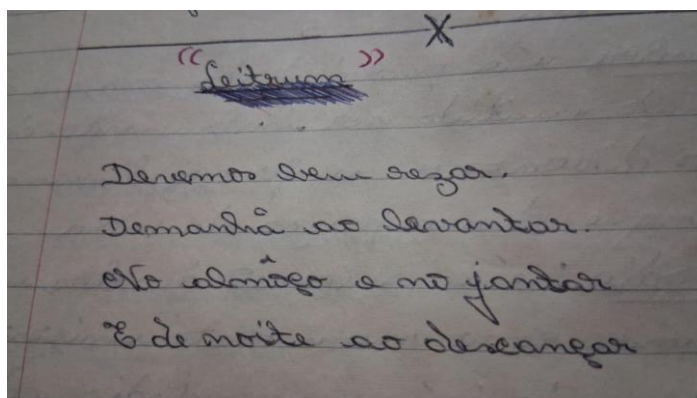 X
"Leitrum"
Devemos bem rezar.
Demanhã ao levantar.
No almôço e no jantar
E de noite ao descançar